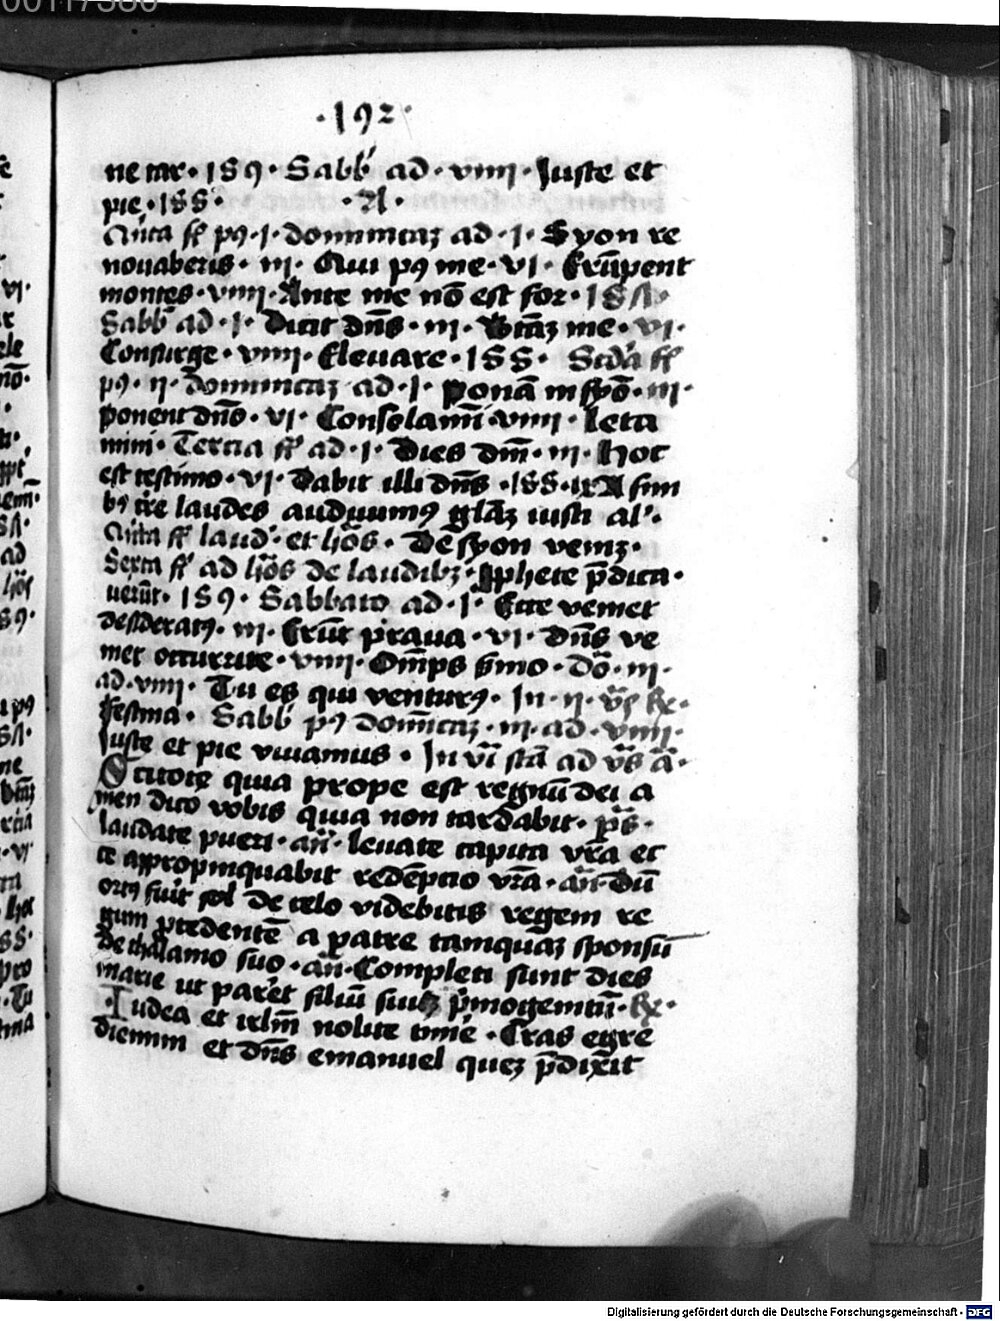 ·192·
ne mr· 189· Sabb̄ ad· viiii· Juste et
pie· 188· ·A·
Qn̄ta fr̄ pꝰ· J· dominicaꝫ ad· J· Syon re
nouaberis· iii· Qui pꝰ me· vi· Erūpent
montes· viiii· Ante me nō est for·
Sabb̄ ad· J· Dicit dn̄s· iii· me· vi·
Consurge· viiii· Eleuare· 188· Scd̄a fr̄
pꝰ· ii· dominicaꝫ ad· J· ponā in syō· iii·
ponent dn̄o· vi· Consolamī· viiii· Leta
mini· Tercia fr̄ ad· J· Dies dn̄i· iii· Hoc
est testimo· vi· Dabit illi dn̄s · 188· A fini
bꝰ tr̄e laudes audiuimꝰ gl̄aꝫ iusti al'·
Qn̄ta fr̄ laud· et hōs· Dē syon veniꝫ·
Sexta fr̄ ad hōs de laudibꝫ· pphete p̄dica·
uerūt· 189· Sabbato ad· J· Ecce veniet
desideratꝰ· iii· Erūt praua· vi· Dn̄s ve
niet occurrite· viiii· Om̄ps s̄mo· Dō· iii·
ad· viiii· Tu es qui venturꝰ· In· ii· v̄s
festina· Sabb̄ pꝰ domīcaꝫ· iii· ad· viiii·
Juste et pie viuamus· In vi stā ad v̄s ā·
Scitote quia prope est regnū dei a
men dico vobis quia non tardabit· p̄s·
laudate pueri· an̄· leuate capita vr̄a ec
ce appropinquabit redēpcio vr̄a· an̄· Dū
ortꝰ fuīt sol de celo videbitis regem re
gum p̄cedentē a patre tamquāꝫ sponsū
de thalamo suo· an̄· Completi sunt dies
marie ut parēt filiū suūꝫ p̄mogenitū·
Judea et irlm̄ nolite timē· Cras egre
diemini et dn̄s emanuel queꝫ p̄dixit
Digitalisierung gefördert durch die Deutsche Forschungsgemeinschaft · DFG